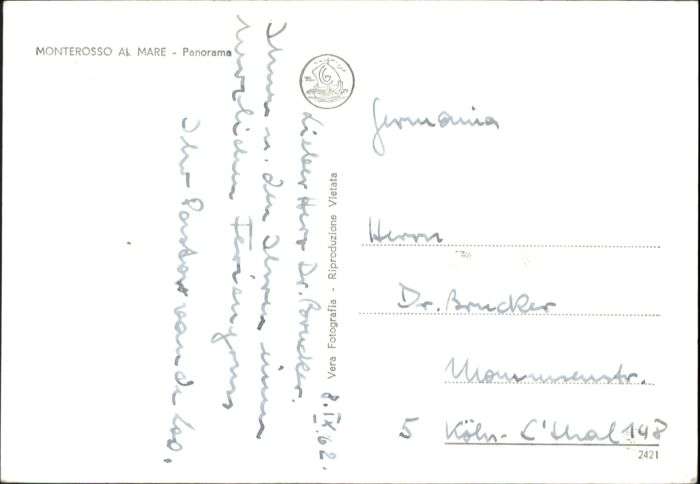 MONTEROSSO AL MARE - Panorama
8.IX.62.
Lieber Herr Dr. Brucker.
Ihnen u. den Ihren einen
herzlichen Feriengruss
Ihr Pastor van de Loo.
Vera Fotografia - Riproduzione Vietata
Germania
Herrn
Dr. Brucker
Mommsenstr. 148
5 Köln-L'thal
2421